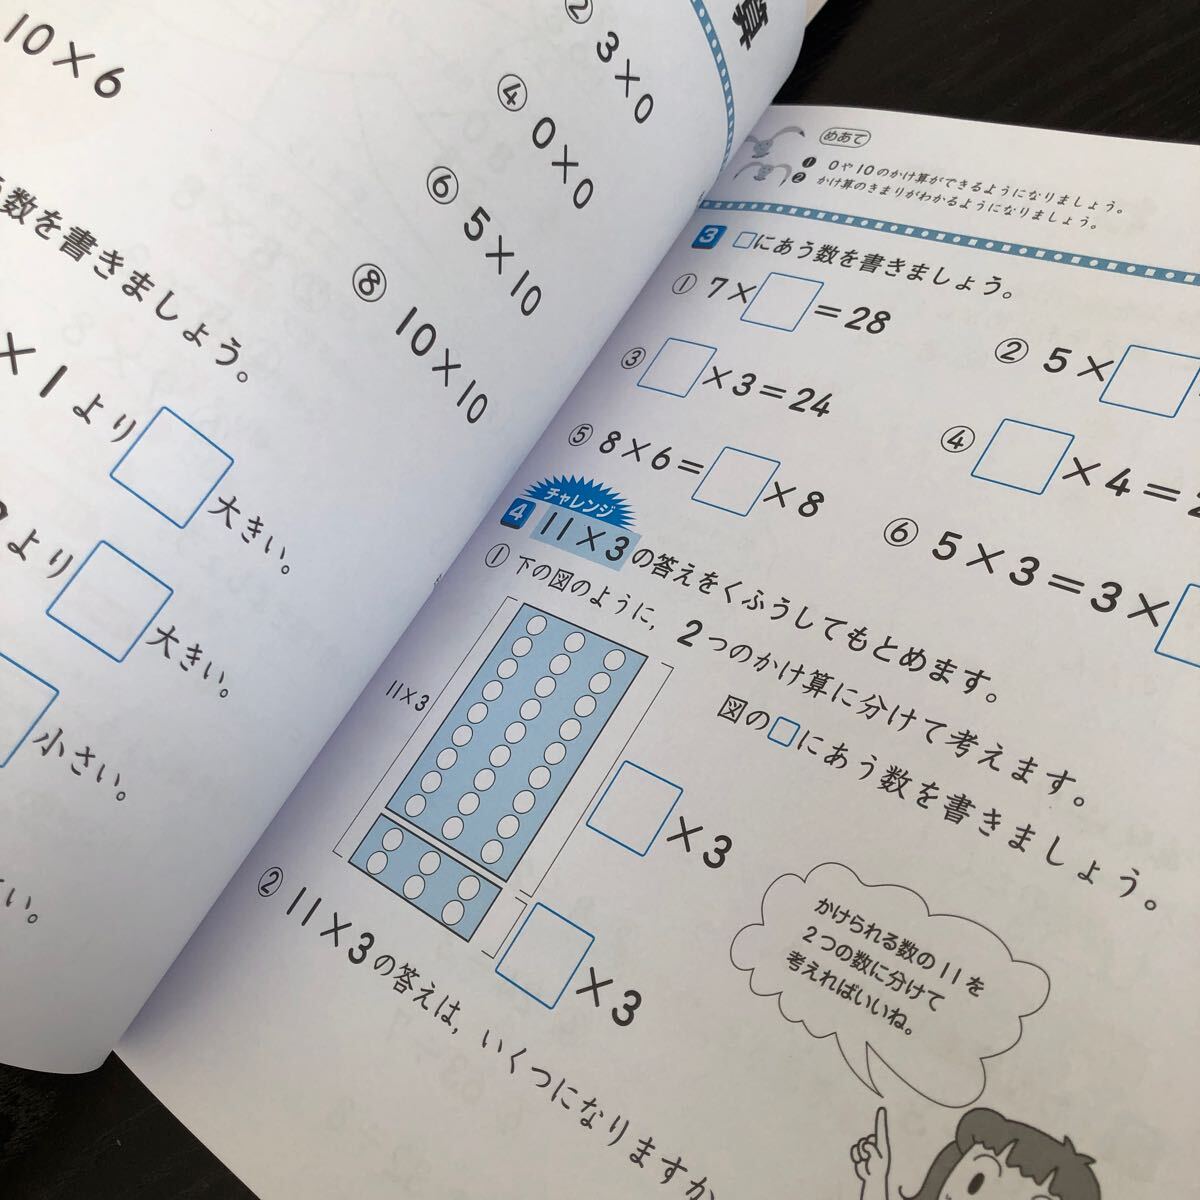 算
10×6
② 3×0
④ 0×0
⑥ 5×10
⑧ 10×10
数を書きましょう。
×1より□大きい。
より□大きい。
小さい。
い。
めあて
❶ 0や10のかけ算ができるようになりましょう。
❷ かけ算のきまりがわかるようになりましょう。
3 □にあう数を書きましょう。
① 7×□=28
② 5×□
③ □×3=24
④ □×4=2
⑤ 8×6=□×8
⑥ 5×3=3×□
チャレンジ
4 11×3の答えをくふうしてもとめます。
① 下の図のように，2つのかけ算に分けて考えます。
図の□にあう数を書きましょう。
11×3
□×3
□×3
かけられる数の11を
2つの数に分けて
考えればいいね。
② 11×3の答えは，いくつになりますか